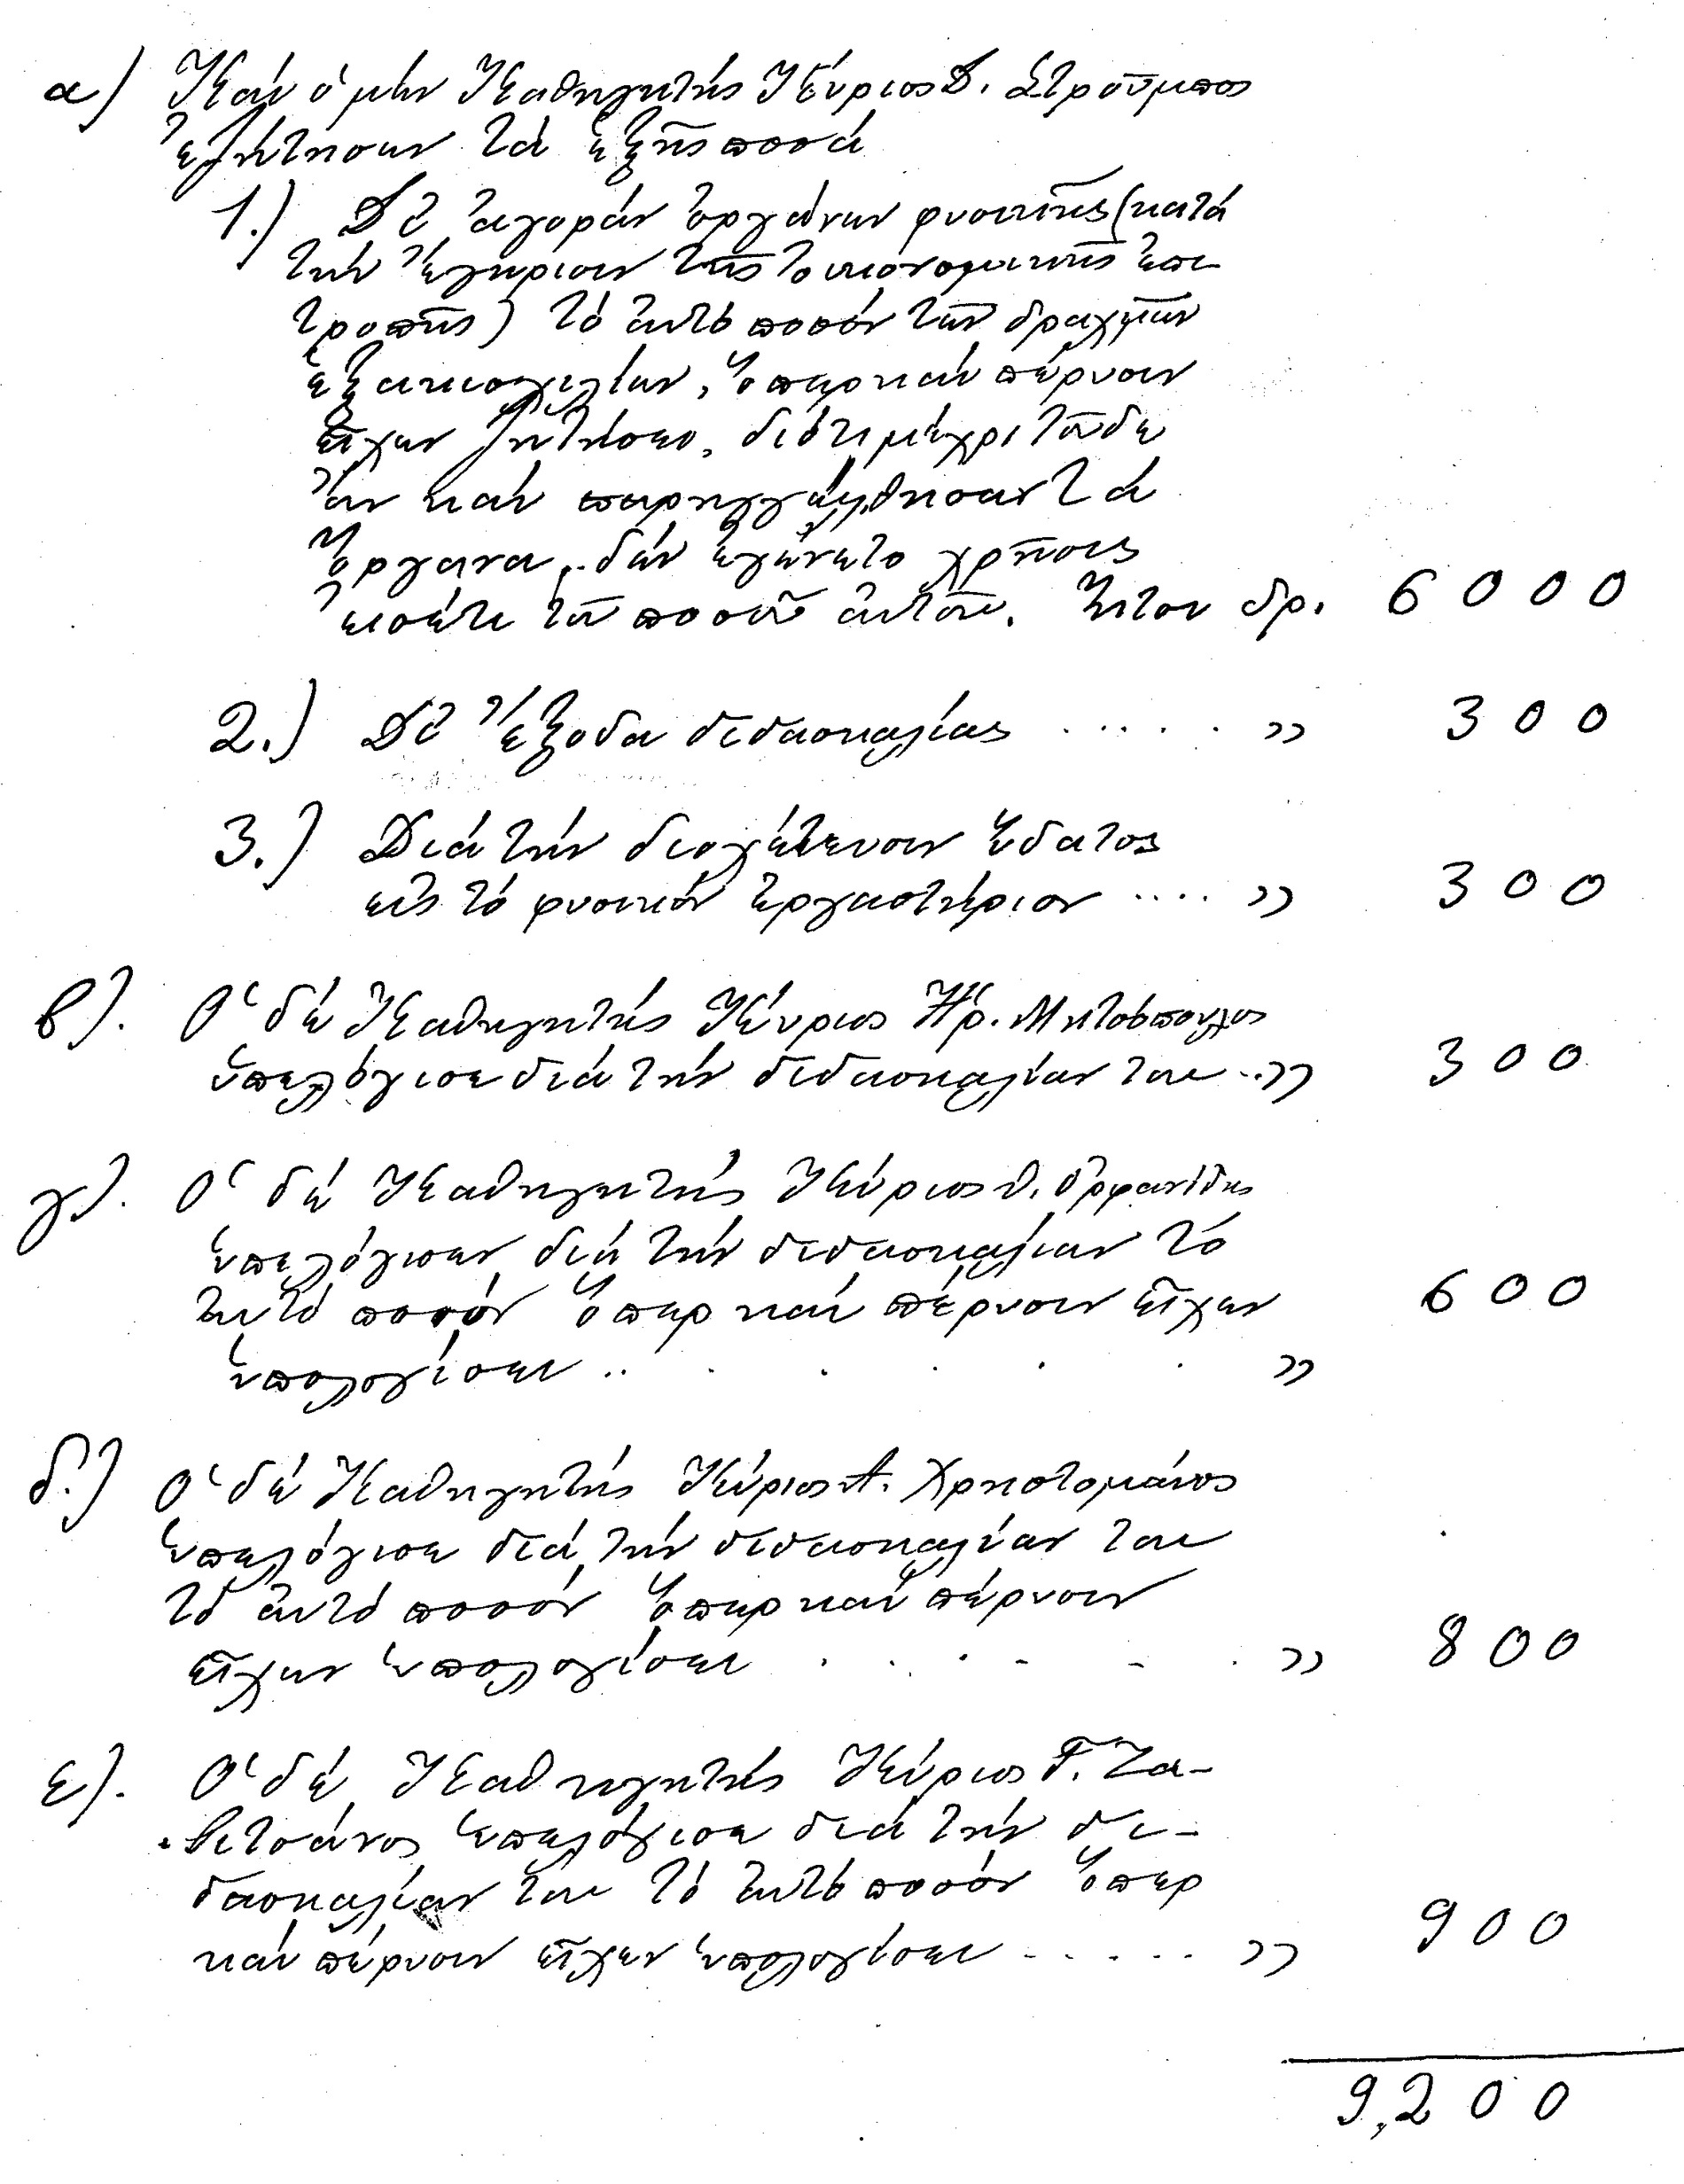 α) Καὶ ὁ μὲν Καθηγητὴς Κύριος Δ. Στροῦμπος
ἐζήτησεν τὰ ἑξῆς ποσά
1.) Δι' ἀγορὰν ὀργάνων φυσικῆς (κατὰ
τὴν ἔγκρισιν τῆς οἰκονομικῆς ἐπι-
τροπῆς) τὸ αὐτὸ ποσὸν τῶν δραχμῶν
ἑξακισχιλίων, ὅπερ καὶ πέρυσιν
εἶχεν ζητήσει, διότι μέχρι τοῦδε
ἂν καὶ παρηγγέλθησαν τὰ
ὄργανα, δὲν ἐγένετο χρῆσις
εἰσέτι τοῦ ποσοῦ αὐτοῦ. Ἤτοι δρ. 6000
2.) Δι' ἔξοδα διδασκαλίας ..... » 300
3.) Διὰ τὴν διοχέτευσιν ὕδατος
εἰς τὸ φυσικὸν ἐργαστήριον .... » 300
β). Ὁ δὲ Καθηγητὴς Κύριος Ἡρ. Μητσόπουλος
ὑπελόγισε διὰ τὴν διδασκαλίαν του ..» 300
γ). Ὁ δὲ Καθηγητὴς Κύριος Θ. Ὀρφανίδης
ὑπελόγισεν διὰ τὴν διδασκαλίαν τὸ
αὐτὸ ποσὸν ὅπερ καὶ πέρυσιν εἶχεν 600
ὑπολογίσει .. . . . . »
δ.) Ὁ δὲ Καθηγητὴς Κύριος Α. Χρηστομάνος
ὑπελόγισε διὰ τὴν διδασκαλίαν του
τὸ αὐτὸ ποσὸν ὅπερ καὶ πέρυσιν
εἶχεν ὑπολογίσει . . . - - . » 800
ε). Ὁ δὲ Καθηγητὴς Κύριος Γ. Ζα-
βιτσάνος ὑπελόγισε διὰ τὴν δι-
δασκαλίαν του τὸ αὐτὸ ποσὸν ὅπερ
καὶ πέρυσιν εἶχεν ὑπολογίσει ...... » 900
9,200